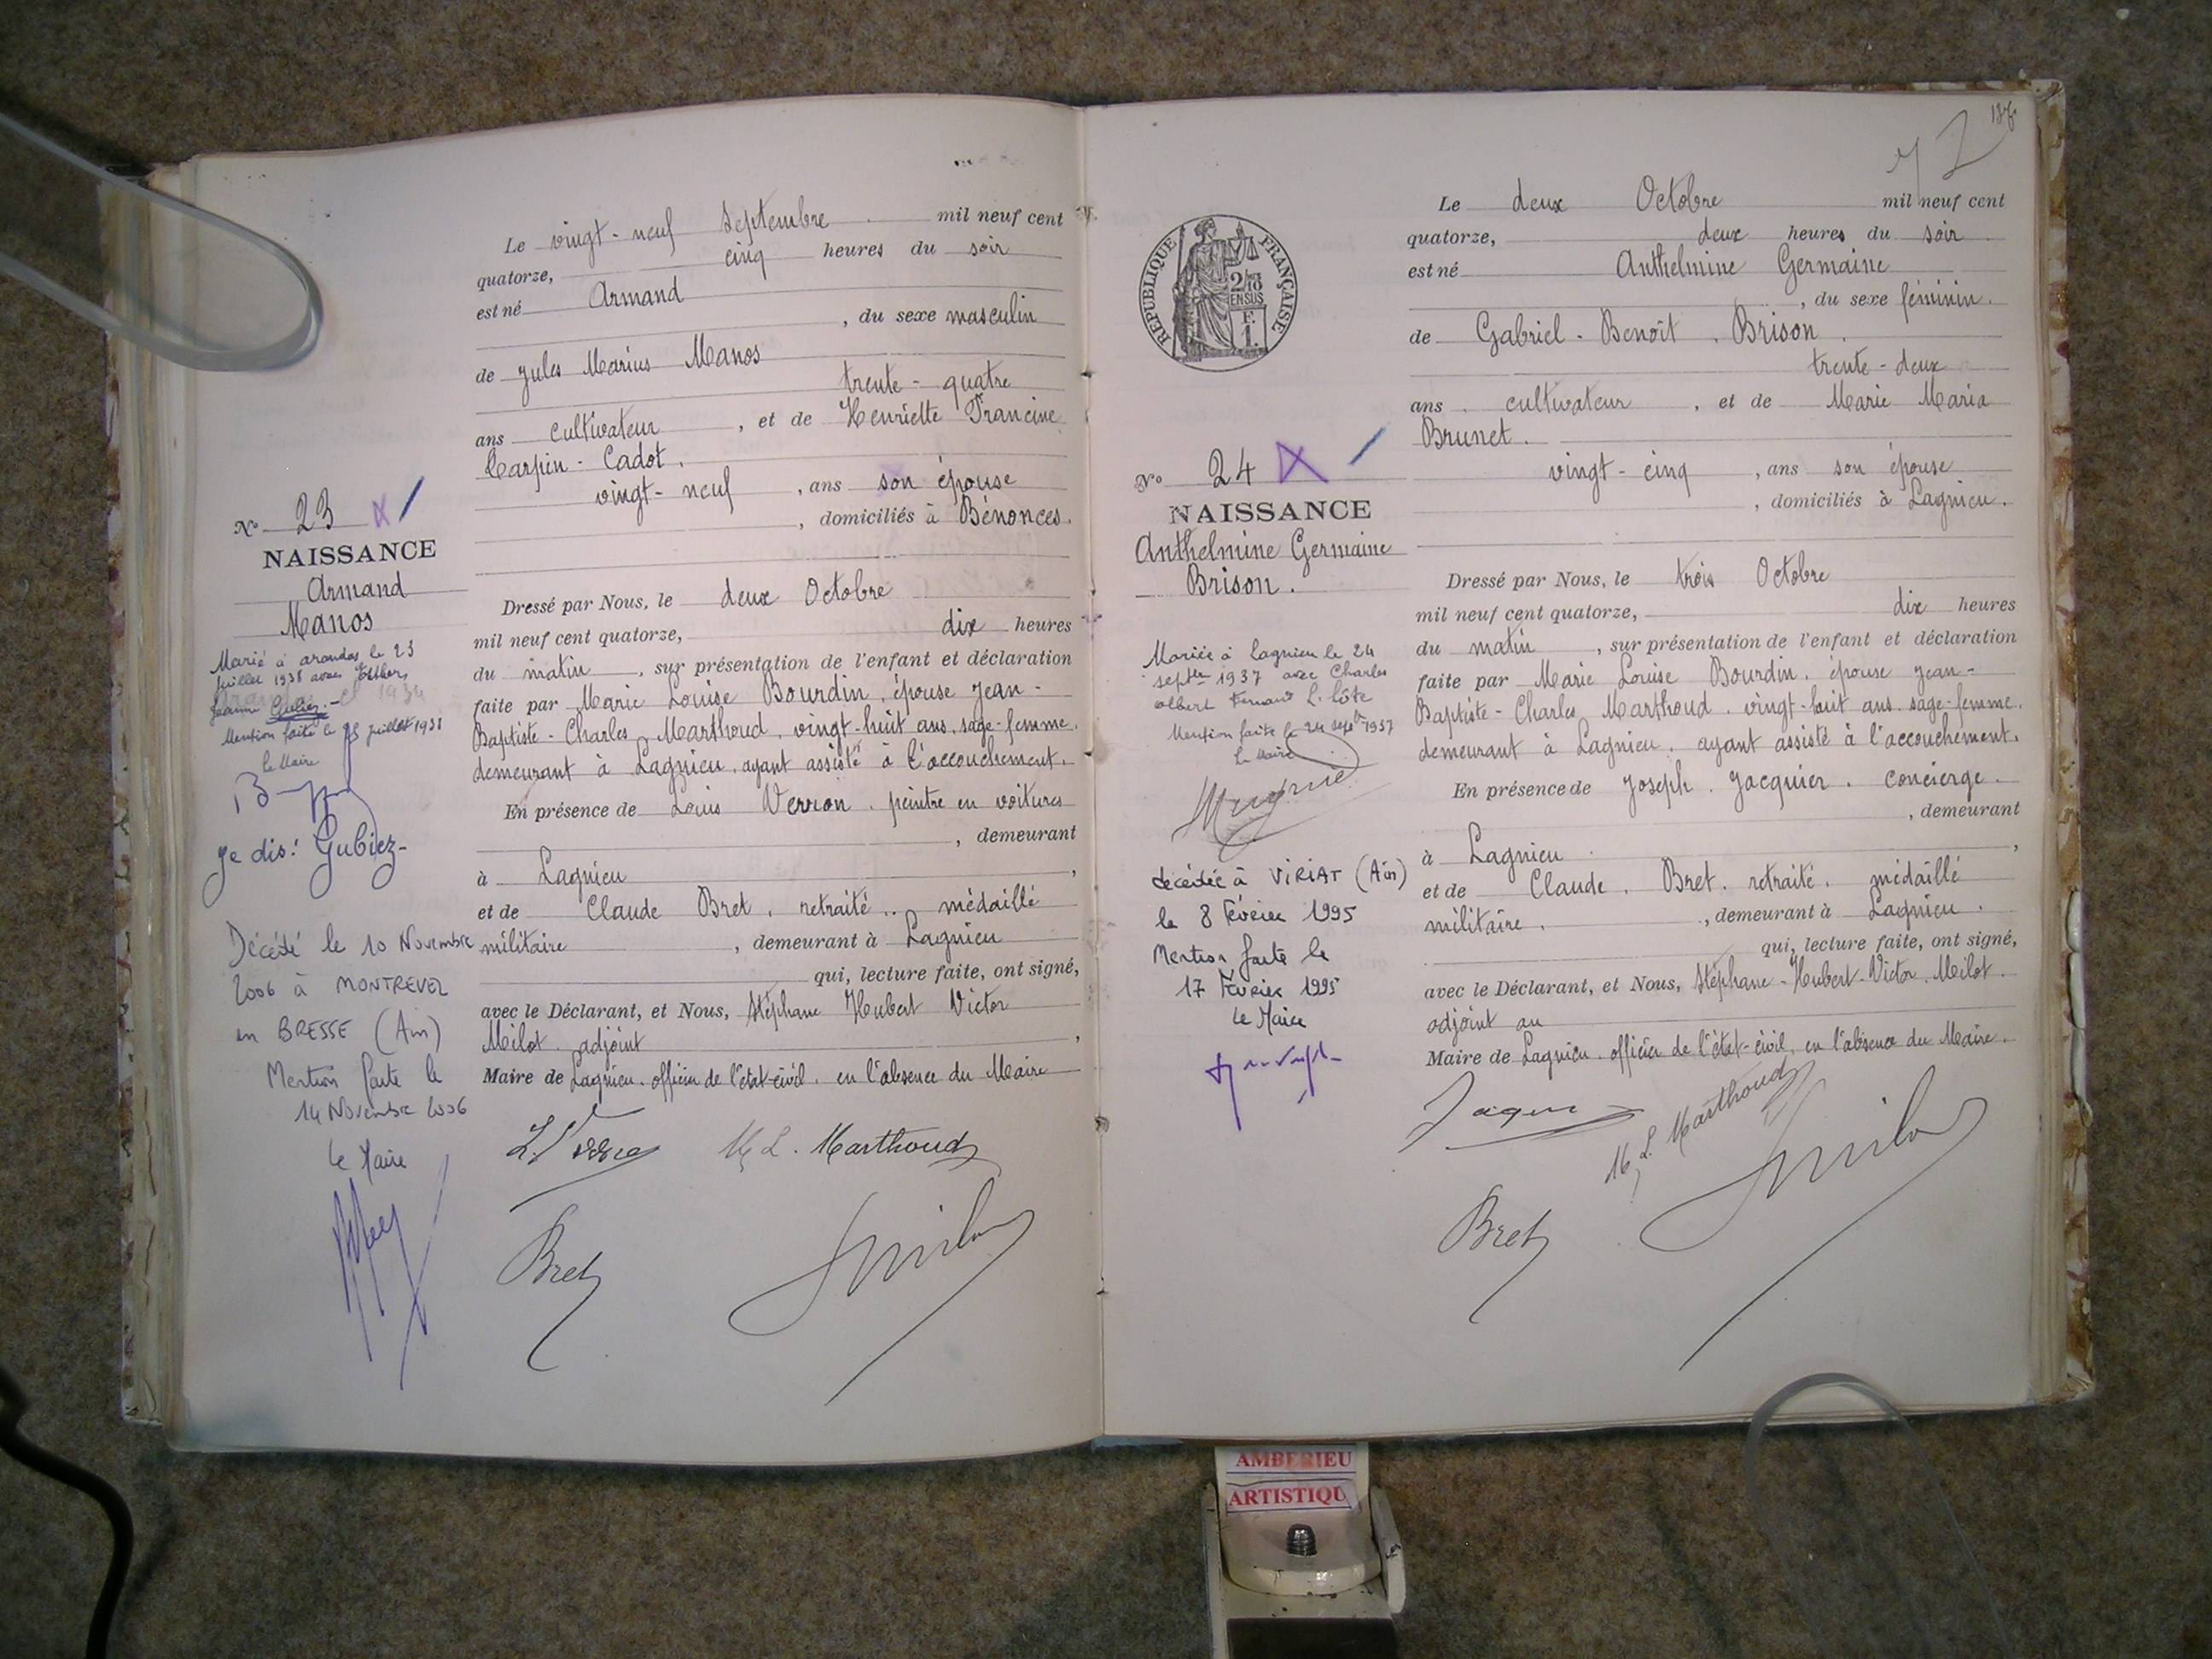 Le vingt-neuf Septembre mil neuf cent
quatorze, cinq heures du soir
est né Armand
, du sexe masculin
de Jules Marius Manos
trente-quatre
ans cultivateur, et de Henriette Francine
Carpin-Cadot.
vingt-neuf, ans son épouse
, domiciliés à Bénonces.
No 23
NAISSANCE
Armand
Manos
Marié à arandas le 23
juillet 1938 avec Esther
Jeanne
Mention faite le 25 juillet 1938
Le Maire
Je dis: Gubiez-
Décédé le 10 Novembre
2006 à MONTREVEL
en BRESSE (Ain)
Mention faite le
14 Novembre 2006
Le Maire
Dressé par Nous, le deux Octobre
mil neuf cent quatorze, dix heures
du matin, sur présentation de l'enfant et déclaration
faite par Marie Louise Bourdin, épouse Jean-
Baptiste-Charles Marthoud, vingt-huit ans, sage-femme,
demeurant à Lagnieu, ayant assisté à l'accouchement.
En présence de Louis Verron, peintre en voitures
, demeurant
à Lagnieu,
et de Claude Bret, retraité, médaillé
militaire, demeurant à Lagnieu
qui, lecture faite, ont signé,
avec le Déclarant, et Nous, Stéphane Hubert Victor
Milot adjoint,
Maire de Lagnieu, officier de l'état-civil, en l'absence du Maire
M. L. Marthoud
Bret
Milot
72
RÉPUBLIQUE FRANÇAISE
2/10
EN SUS
F.
1.
Le deux Octobre mil neuf cent
quatorze, deux heures du soir.
est né Anthelmine Germaine
, du sexe féminin.
de Gabriel-Benoît Brison.
trente-deux
ans, cultivateur, et de Marie Maria
Brunet.
vingt-cinq, ans son épouse
, domiciliés à Lagnieu.
No 24
NAISSANCE
Anthelmine Germaine
Brison.
Mariée à Lagnieu le 24
septbre 1937 avec Charles
albert Fernand
Mention faite le 24 septbre 1937
Le Maire
décédée à VIRIAT (Ain)
le 8 Février 1995
Mention faite le
17 Février 1995
Le Maire
Dressé par Nous, le trois Octobre
mil neuf cent quatorze, dix heures
du matin, sur présentation de l'enfant et déclaration
faite par Marie Louise Bourdin, épouse Jean-
Baptiste-Charles Marthoud, vingt-huit ans, sage-femme,
demeurant à Lagnieu, ayant assisté à l'accouchement.
En présence de Joseph Jacquier, concierge.
, demeurant
à Lagnieu,
et de Claude Bret, retraité, médaillé
militaire, demeurant à Lagnieu.
qui, lecture faite, ont signé,
avec le Déclarant, et Nous, Stéphane-Hubert-Victor Milot
adjoint au
Maire de Lagnieu, officier de l'état-civil, en l'absence du Maire.
M. L. Marthoud
Bret
Milot
AMBERIEU
ARTISTIQU